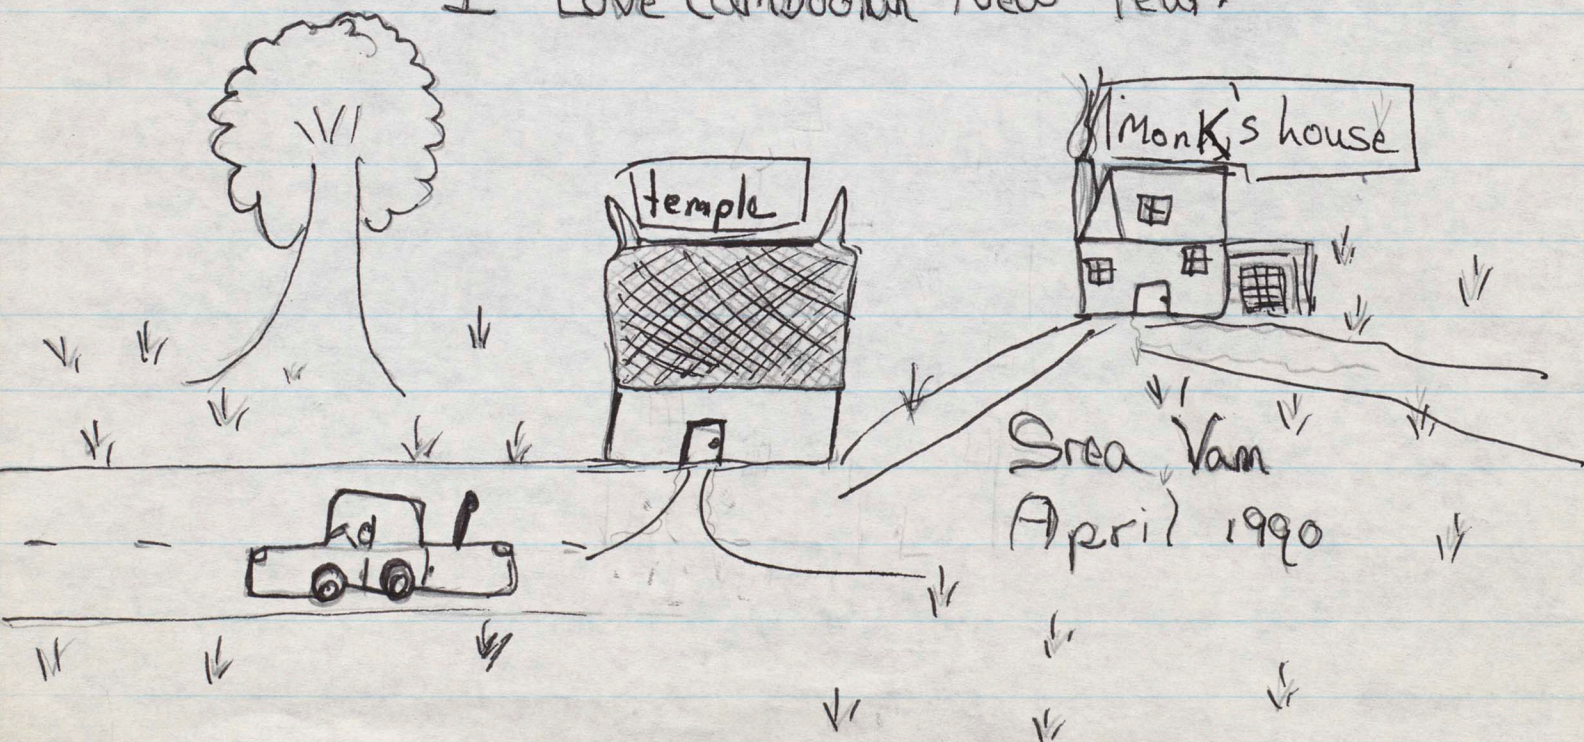 I Love Cambodian New Year!
temple
Monk's house
Srea Vam
April 1990